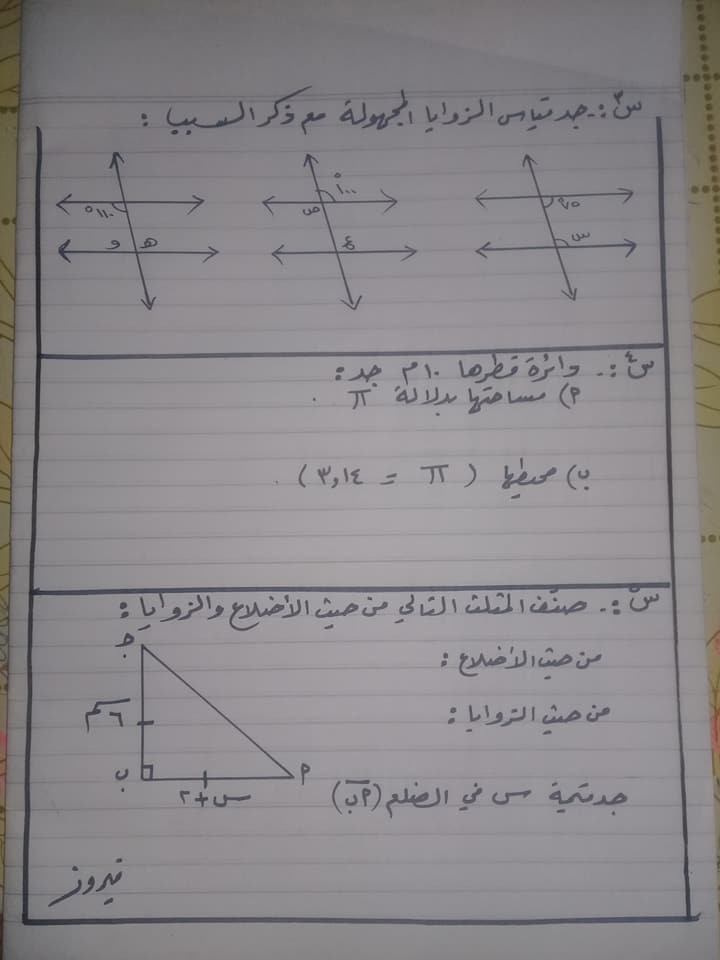 س٣:. جد قياس الزوايا المجهولة مع ذكر السبب :
٧٥ ْ١٠٠ ْ١١٠
س ص ع هـ و
س٤:. دائرة قطرها ١٠م جد:
٢) مساحتها بدلالة π .
ب) محيطها ( π = ٣,١٤ ) .
س٥:. صنّف المثلث التالي من حيث الأضلاع والزوايا :
جـ
من حيث الأضلاع :
٦سم
من حيث الزوايا :
ب ٢
س + ٢
جد قيمة س في الضلع (٢ب)
نيروز